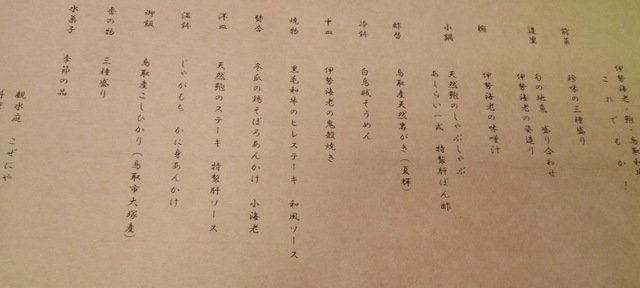 伊勢海老・鮑・鳥取和
これでもか！
前菜　珍味の三種盛り
造里　旬の地魚　盛り合わせ
伊勢海老の姿造り
椀　伊勢海老の味噌汁
小鍋　天然鮑のしゃぶしゃぶ
あしらい一式　特製肝ぽん酢
酢替　鳥取産天然岩がき（夏輝）
冷鉢　白烏賊そうめん
中皿　伊勢海老の鬼殻焼き
焼物　黒毛和牛のヒレステーキ　和風ソース
焚合　冬瓜の鶏そぼろあんかけ　小海老
洋皿　天然鮑のステーキ　特製肝ソース
温鉢　じゃがもち　かに身あんかけ
御飯　鳥取産こしひかり（鳥取市大塚産）
香の物　三種盛り
水菓子　季節の品
観水庭　こぜにや
料理